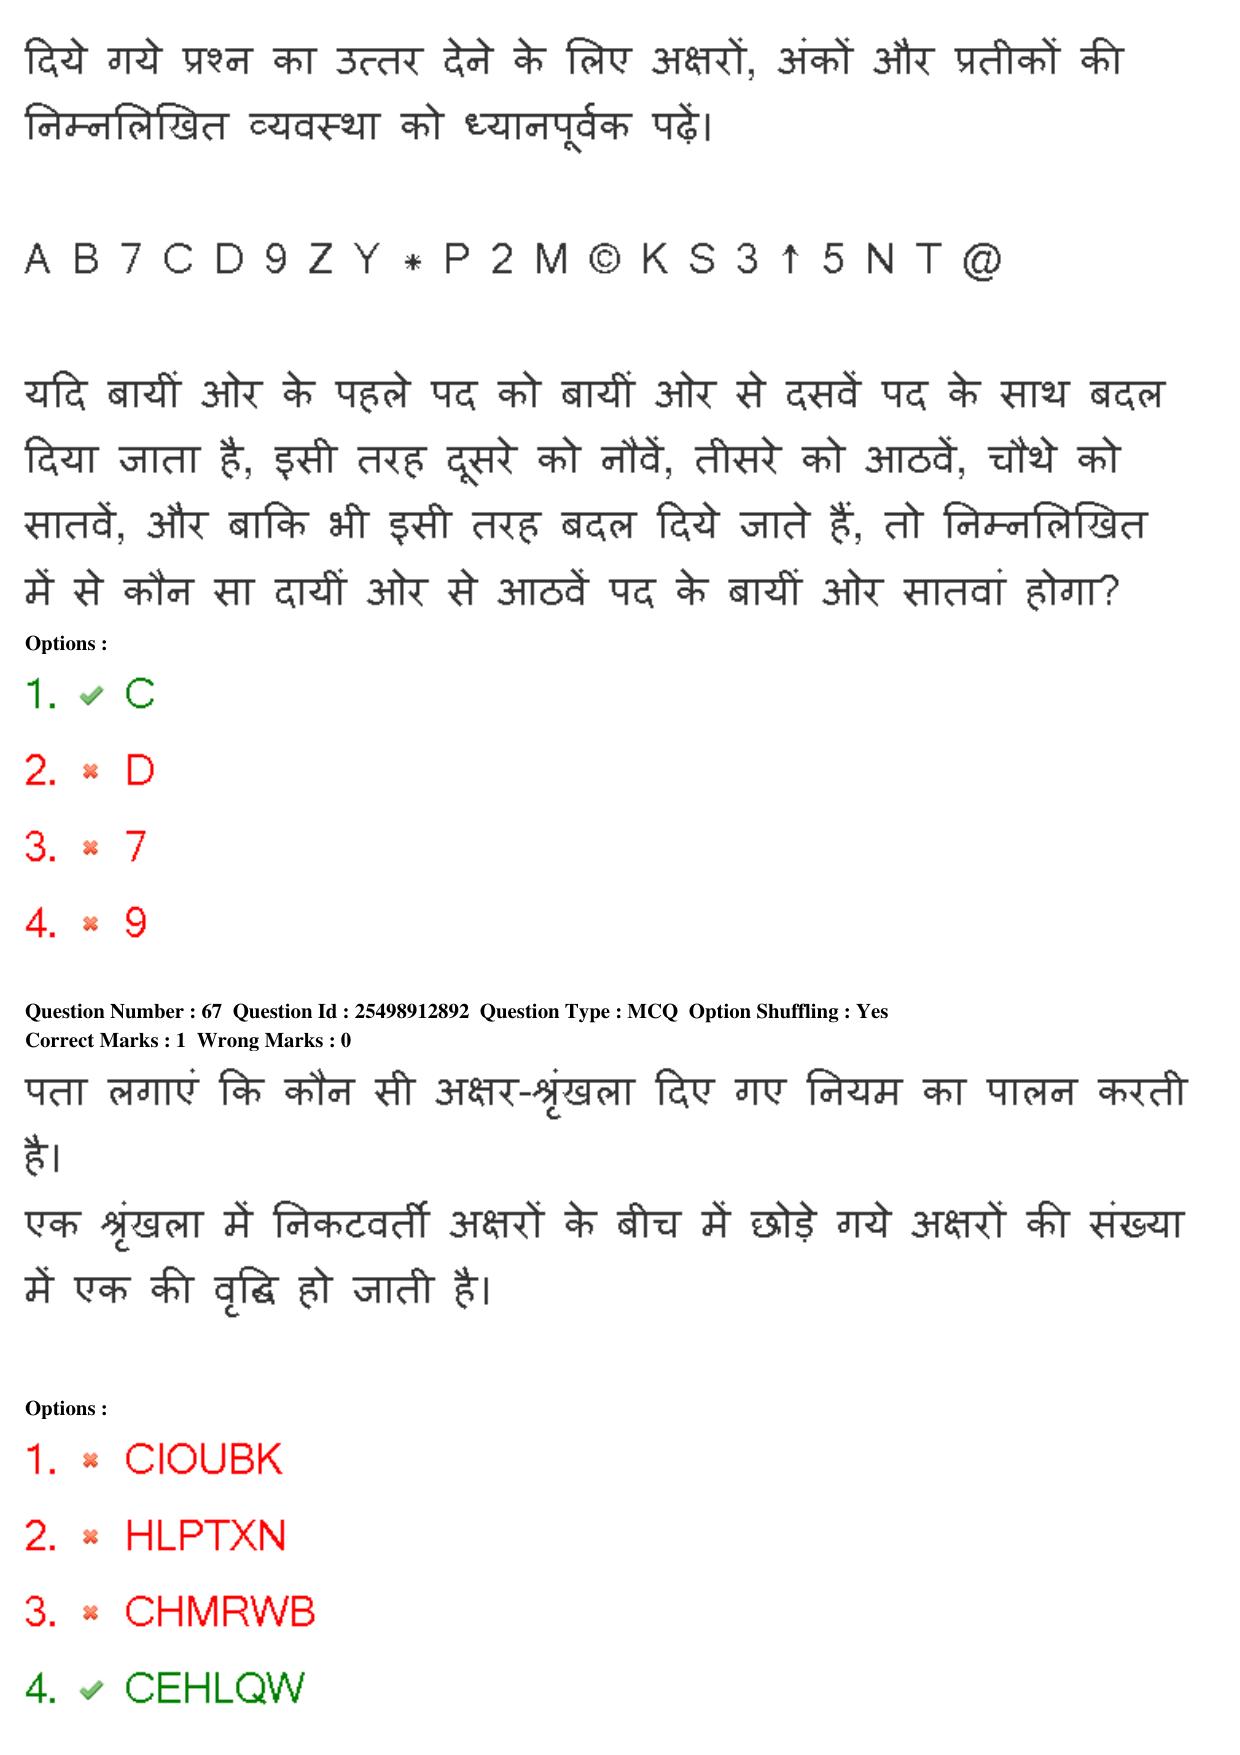 दिये गये प्रश्न का उत्तर देने के लिए अक्षरों, अंकों और प्रतीकों की
निम्नलिखित व्यवस्था को ध्यानपूर्वक पढ़ें।
A B 7 C D 9 Z Y * P 2 M © K S 3 ↑ 5 N T @
यदि बायीं ओर के पहले पद को बायीं ओर से दसवें पद के साथ बदल
दिया जाता है, इसी तरह दूसरे को नौवें, तीसरे को आठवें, चौथे को
सातवें, और बाकि भी इसी तरह बदल दिये जाते हैं, तो निम्नलिखित
में से कौन सा दायीं ओर से आठवें पद के बायीं ओर सातवां होगा?
Options :
1. ✔ C
2. ✖ D
3. ✖ 7
4. ✖ 9
Question Number : 67 Question Id : 25498912892 Question Type : MCQ Option Shuffling : Yes
Correct Marks : 1 Wrong Marks : 0
पता लगाएं कि कौन सी अक्षर-श्रृंखला दिए गए नियम का पालन करती
है।
एक श्रृंखला में निकटवर्ती अक्षरों के बीच में छोड़े गये अक्षरों की संख्या
में एक की वृद्धि हो जाती है।
Options :
1. ✖ CIOUBK
2. ✖ HLPTXN
3. ✖ CHMRWB
4. ✔ CEHLQW